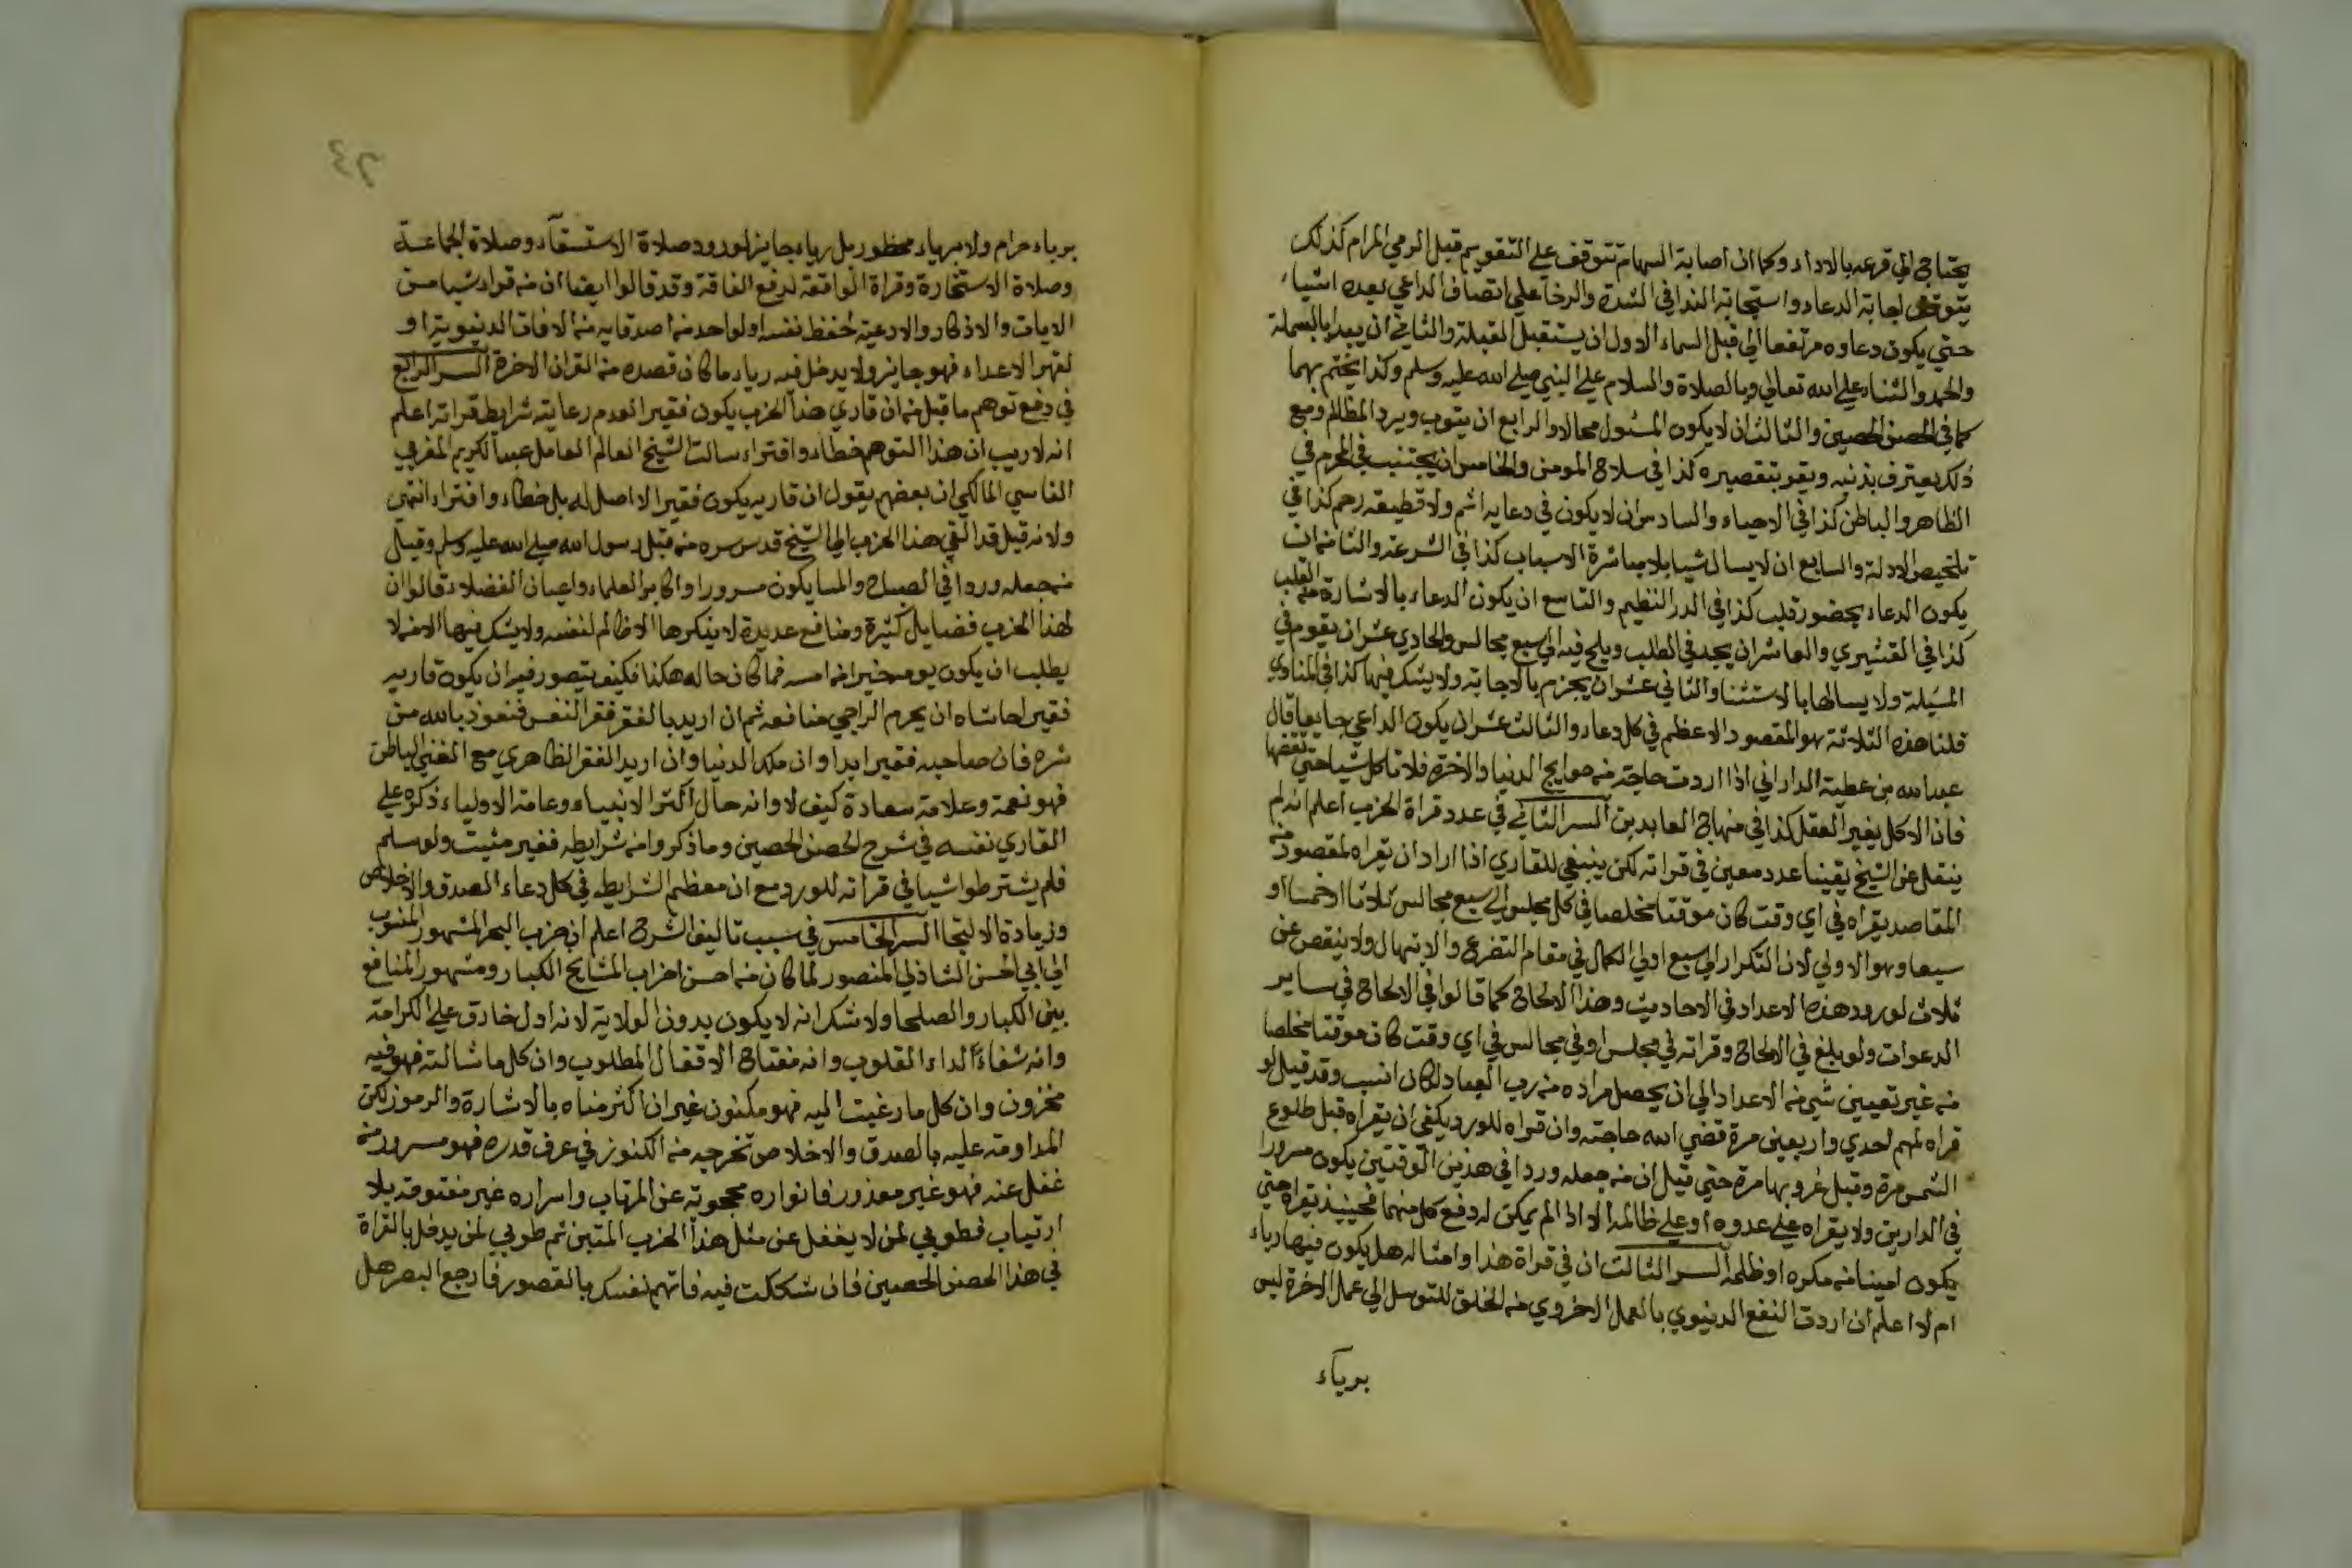 يحتاج الي قرعه بالاداء وكما ان اصابة السهام تتوقف علي التقويم قبل الرمي المرام كذلك
يتوقف اجابة الدعاء واستجابة الندا في الشدة والرخا علي اتصاف الداعي بعده اشياء
حتي يكون دعاوه مرتفعا الي قبل السماء الاول ان يستقبل القبلة والثاني ان يبدا بالبسملة
والحمد والثناء علي الله تعالي وبالصلاة والسلام علي النبي صلي الله عليه وسلم وكذا يختم بهما
كما في الحصن الحصين والثالث ان لا يكون المسئول محالا والرابع ان يتوب ويرد المظالم ومع
ذلك يعترف بذنبه ويقر بتقصيره كذا في سلاح المومن والخامس ان يجتنب في المحرم في
الظاهر والباطن كذا في الاحياء والسادس ان لا يكون في دعايه اثم ولا قطيعة رحم كذا في
تلخيص الادلة والسابع ان لا يسال شيا بلا مباشرة الاسباب كذا في الشرعة والثامن ان
يكون الدعاء بحضور قلب كذا في الدر النظيم والتاسع ان يكون الدعاء بالاشارة من القلب
كذا في القشيري والعاشر ان يجد في الطلب ويلح فيه الي سبع مجالس والحادي عشر ان يقوم في
المسيلة ولا يسالها بالاستثنا والثاني عشر ان يجزم بالاجابة ولا يشك فيها كذا في المناوي
قلنا هذه الثلاثة هو المقصود الاعظم في كل دعاء والثالث عشر ان يكون الداعي جايعا قال
عبد الله بن عطية الداراني اذا اردت حاجة من حوايج الدنيا والاخرة فلا تاكل شيا حتي تقضها
فان الاكل يغير العقل كذا في منهاج العابدين السر الثاني في عدد قراة الحزب اعلم انه لم
ينقل عن الشيخ يقينا عدد معين في قراته لكن ينبغي للقاري اذا اراد ان يقراه لمقصود من
المقاصد يقراه في اي وقت كان موقتا مخلصا في كل مجلس الي سبع مجالس ثلاثا او خمسا او
سبعا وهو الاولي لان التكرار الي سبع اولي الكمال في مقام التضرع والابتهال ولا ينقص عن
ثلاث لورود هذه الاعداد في الاحاديث وهذا الالحاح كما قالوا في الالحاح في ساير
الدعوات ولو بلغ في الالحاح وقراته في مجلس او في مجالس في اي وقت كان موقتا مخلصا
من غير تعيين شي من الاعداد الي ان يحصل مراده من رب العباد لكان انسب وقد قيل لو
قراه لمهم احدي واربعين مرة قضي الله حاجته وان قراه للورد يكفي ان يقراه قبل طلوع
الشمس مرة وقبل غروبها مرة حتي قيل ان من جعله وردا في هذين الوقتين يكون مسرورا
في الدارين ولا يقراه علي عدوه او علي ظالمه الا اذا لم يمكن له دفع كل منهما فحينيذ يقراه حتي
يكون امينا من مكره او ظلمه السر الثالث ان في قراة هذا وامثاله هل يكون فيها رياء
ام لا اعلم ان اردت النفع الدنيوي بالعمل الاخروي من الخلق للتوسل الي عمل الاخرة ليس
برياء
برياء حرام ولا برياء محظور بل رياء جايز لورود صلاة الاستسقاء وصلاة الجماعة
وصلاة الاستخارة وقراة الواقعة لدفع الفاقة وقد قالوا ايضا ان من قراء شيا من
الايات والاذكار والادعية لحفظ نفسه او لواحد من اصدقايه من الافات الدنيوية او
لقهر الاعداء فهو جايز ولا يدخل فيه رياء ما كان قصده من القران الاخرة السر الرابع
في دفع توهم ما قيل من ان قاري هذا الحزب يكون فقيرا لعدم رعايته شرايط قراته اعلم
انه لا ريب ان هذا التوهم خطاء وافتراء سالت الشيخ العالم العامل عبد الكريم المغربي
الفاسي المالكي ان بعضهم يقول ان قاريه يكون فقيرا لا اصل له بل خطاء وافتراء انتهي
ولانه قيل قد القي هذا الحزب الي الشيخ قدس سره من قبل رسول الله صلي الله عليه وسلم وقيل
من جعله وردا في الصباح والمسا يكون مسرورا واكابر العلماء واعيان الفضلاء قالوا ان
لهذا الحزب فضايل كثيرة ومنافع عديدة لا ينكرها الا ظالم لنفسه ولا يشك فيها الا من لا
يطلب ان يكون يومه خيرا من امسه فما كان حاله هكذا فكيف يتصور فيه ان يكون قاريه
فقيرا حاشاه ان يحرم الراجي منافعه ثم ان اريد بالفقر فقر النفس فنعوذ بالله من
شره فان صاحبه فقير ابدا وان ملك الدنيا وان اريد الفقر الظاهري مع الغني الباطن
فهو نعمة وعلامة سعادة كيف لا وانه حال اكثر الانبياء وعامة الاولياء ذكره علي
القاري نفسه في شرح الحصن الحصين وما ذكروا من شرايطه فغير مثبت ولو سلم
فلم يشترطوا شيا في قراته للورد مع ان معظم الشرايط في كل دعاء الصدق والاخلاص
وزيادة الالتجا السر الخامس في سبب تاليف الشرح اعلم ان حزب البحر المشهور المنسوب
الي ابي الحسن الشاذلي المنصور لما كان من احسن احزاب المشايخ الكبار ومشهور المنافع
بين الكبار والصلحا ولا شك انه لا يكون بدون الولاية لانه ادل خارق علي الكرامة
وانه شفاء الداء القلوب وانه مفتاح الاقفال المطلوب وان كل ما شالته فهو فيه
مخزون وان كل ما رغبت اليه فهو مكنون غير ان اكثر مناه بالاشارة والرموز لكن
المداومة عليه بالصدق والاخلاص تخرجه من الكنوز في عرف قدره فهو مسرور من
غفل عنه فهو غير معذور فانواره محجوبة عن المرتاب واسراره غير مفتوقة بلا
ارتياب فطوبي لمن لا يغفل عن مثل هذا الحزب المتين ثم طوبي لمن يدخل بالقراة
في هذا الحصن الحصين فان شككت فيه فاتهم نفسك بالقصور فارجع البصر هل